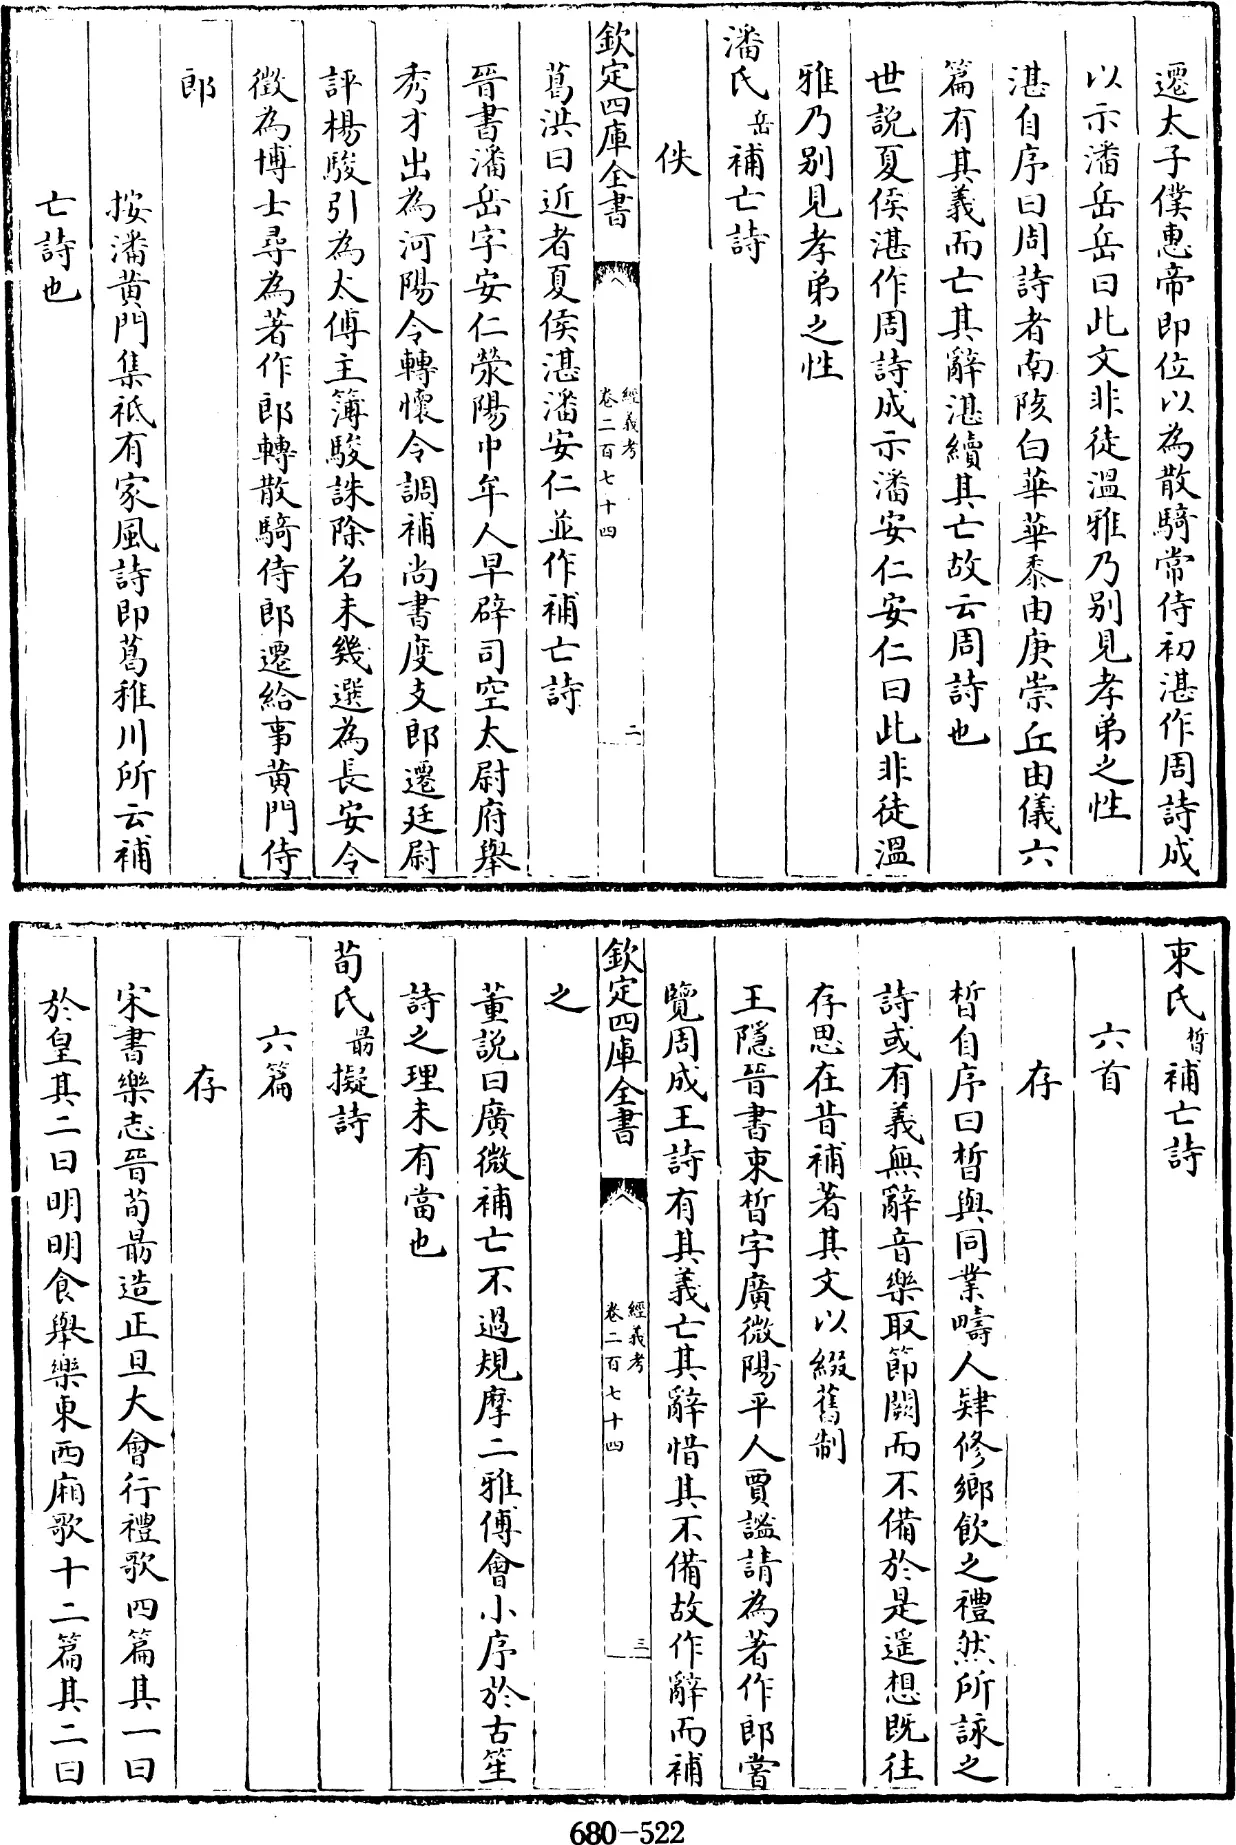 遷太子僕惠帝即位以為散騎常侍初湛作周詩成
以示潘岳岳曰此文非徒溫雅乃別見孝弟之性
湛自序曰周詩者南陔白華華黍由庚崇丘由儀六
篇有其義而亡其辭湛續其亡故云周詩也
世說夏侯湛作周詩成示潘安仁安仁曰此非徒溫
雅乃別見孝弟之性
潘氏岳補亡詩
佚
欽定四庫全書
經義考
卷二百七十四
二
葛洪曰近者夏侯湛潘安仁並作補亡詩
晉書潘岳字安仁滎陽中牟人早辟司空太尉府舉
秀才出為河陽令轉懷令調補尚書度支郎遷廷尉
評楊駿引為太傅主簿駿誅除名未幾選為長安令
徵為博士尋為著作郎轉散騎侍郎遷給事黃門侍
郎
按潘黃門集祗有家風詩即葛稚川所云補
亡詩也
束氏晳補亡詩
六首
存
晳自序曰晳與同業疇人肄修鄉飲之禮然所詠之
詩或有義無辭音樂取節闕而不備於是遥想既往
存思在昔補著其文以綴舊制
王隱晉書束晳字廣微陽平人賈謐請為著作郎嘗
覽周成王詩有其義亡其辭惜其不備故作辭而補
欽定四庫全書
經義考
卷二百七十四
三
之
董說曰廣微補亡不過規摩二雅傅會小序於古笙
詩之理未有當也
荀氏勗擬詩
六篇
存
宋書樂志晉荀勗造正旦大會行禮歌四篇其一曰
於皇其二曰明明食舉樂東西廂歌十二篇其二曰
680-522